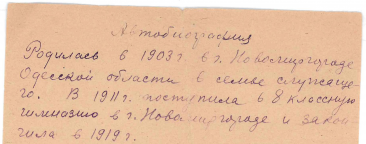 Автобиография
Родилась в 1903 г. в г. Новомиргороде
Одесской области в семье служаще-
го. В 1911 г. поступила в 8 классную
гимназию в г. Новомиргороде и закон-
чила в 1919 г.